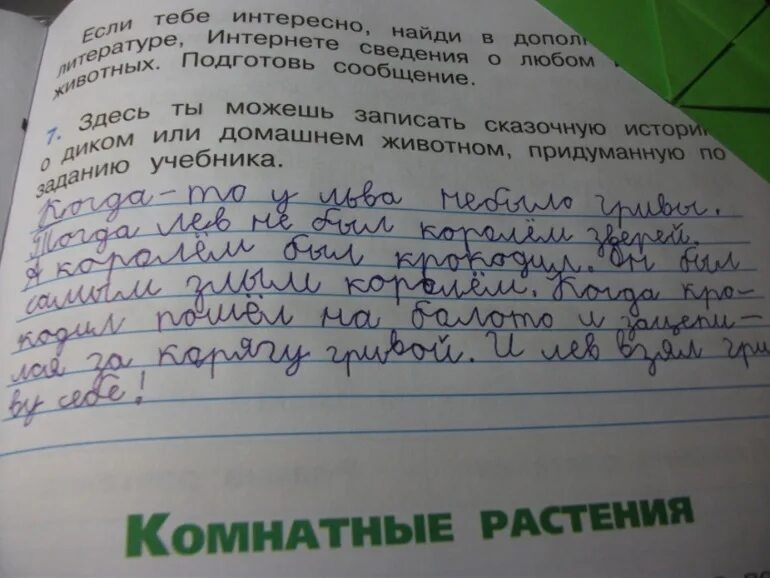 Если тебе интересно, найди в допол
литературе, Интернете сведения о любом
животных. Подготовь сообщение.
7. Здесь ты можешь записать сказочную истори
о диком или домашнем животном, придуманную по
заданию учебника.
Когда-то у льва небыло гривы.
Тогда лев не был королём зверей.
А королём был крокодил. Он был
самым злым королём. Когда кро-
кодил пошёл на балото и зацепи-
лся за карягу гривой. И лев взял гри
ву себе!
Комнатные растения